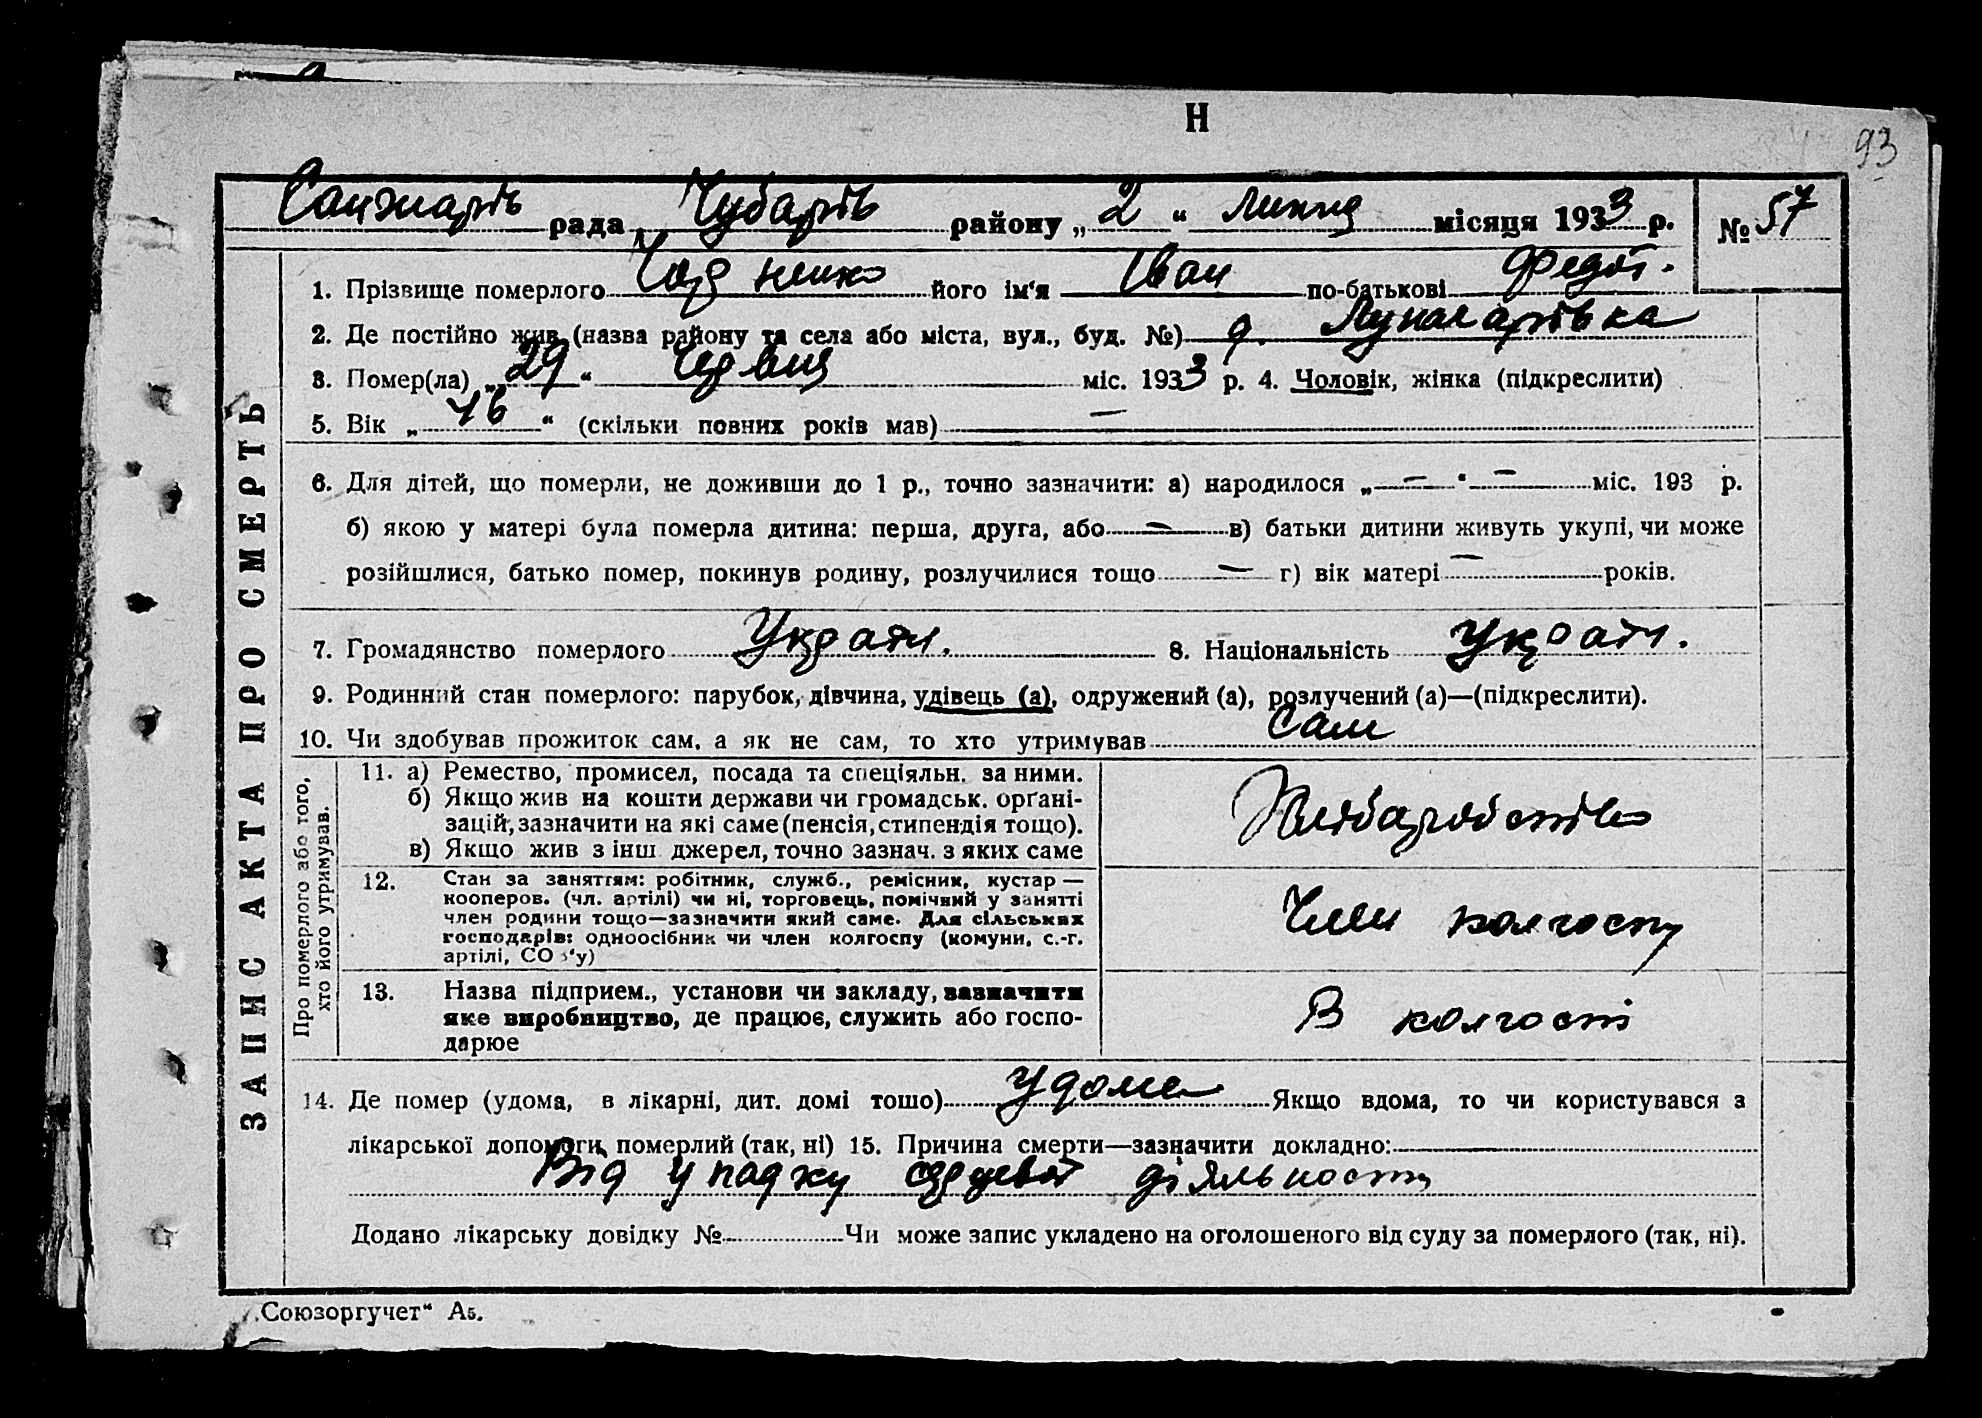 Н
93
Санжарів рада Чубарів району „2“ липня місяця 1933 р. № 57
1. Прізвище померлого його ім'я Іван по-батькові Федот.
2. Де постійно жив (назва району та села або міста, вул., буд. №) Луначарівка
3. Помер(ла) „29“ червня міс. 1933 р. 4. Чоловік, жінка (підкреслити)
5. Вік „46“ (скільки повних років мав) —
6. Для дітей, що померли, не доживши до 1 р., точно зазначити: а) народилося „—“ — міс. 193 р.
б) якою у матері була померла дитина: перша, друга, або — в) батьки дитини живуть укупі, чи може
розійшлися, батько помер, покинув родину, розлучилися тощо — г) вік матері — років.
7. Громадянство померлого Україн. 8. Національність Україн.
9. Родинний стан померлого: парубок, дівчина, удівець (а), одружений (а), розлучений (а)—(підкреслити).
10. Чи здобував прожиток сам, а як не сам, то хто утримував сам
ЗАПИС АКТА ПРО СМЕРТЬ
Про померлого або того,
хто його утримував.
11. а) Ремество, промисел, посада та спеціяльн. за ними.
б) Якщо жив на кошти держави чи громадськ. орґані-
зацій, зазначити на які саме (пенсія, стипендія тощо).
в) Якщо жив з інш. джерел, точно зазнач. з яких саме
Хліборобство
12. Стан за заняттям: робітник, служб., ремісник, кустар —
кооперов. (чл. артілі) чи ні, торговець, помічний у занятті
член родини тощо—зазначити який саме. Для сільських
господарів: одноосібник чи член колгоспу (комуни, с.-г.
артілі, СО з'у)
Член колгоспу
13. Назва підприєм., установи чи закладу, зазначити
яке виробництво, де працює, служить або госпо-
дарює
В колгоспі
14. Де помер (удома, в лікарні, дит. домі тощо) удома Якщо вдома, то чи користувався з
лікарської допомоги померлий (так, ні) 15. Причина смерти—зазначити докладно:
Від упадку сердцевої діяльности
Додано лікарську довідку № Чи може запис укладено на оголошеного від суду за померлого (так, ні).
„Союзоргучет“ А5.